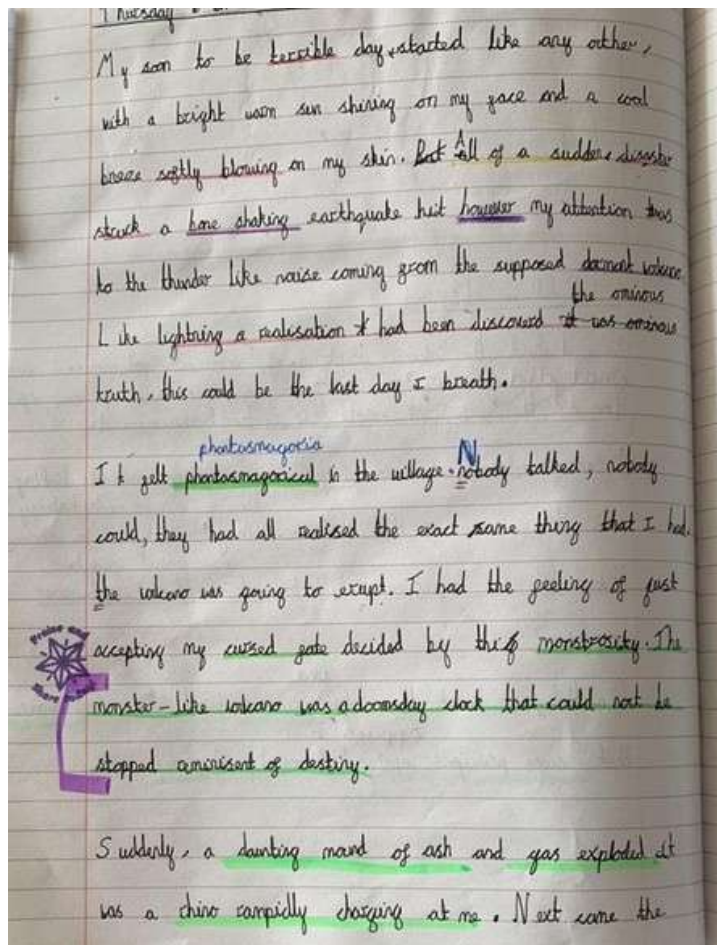 Thursday
My soon to be terrible day, started like any other,
with a bright warm sun shining on my face and a cool
breeze softly blowing on my skin. But All of a sudden, disaster
struck a bone shaking earthquake hit however my attention was
to the thunder like noise coming from the supposed dormant volcano
the ominous
Like lightning a realisation it had been discoverd it was ominous
truth, this could be the last day I breath.
phantasmagoria
It felt phantasmagorical in the village. Nobody talked, nobody
could, they had all realised the exact same thing that I had.
the volcano was going to erupt. I had the feeling of just
accepting my cursed fate decided by this monstrosity. The
monster-like volcano was a doomsday clock that could not be
stopped of destiny.
Suddenly, a daunting mound of ash and gas exploded it
was a rhino rampidly charging at me. Next came the